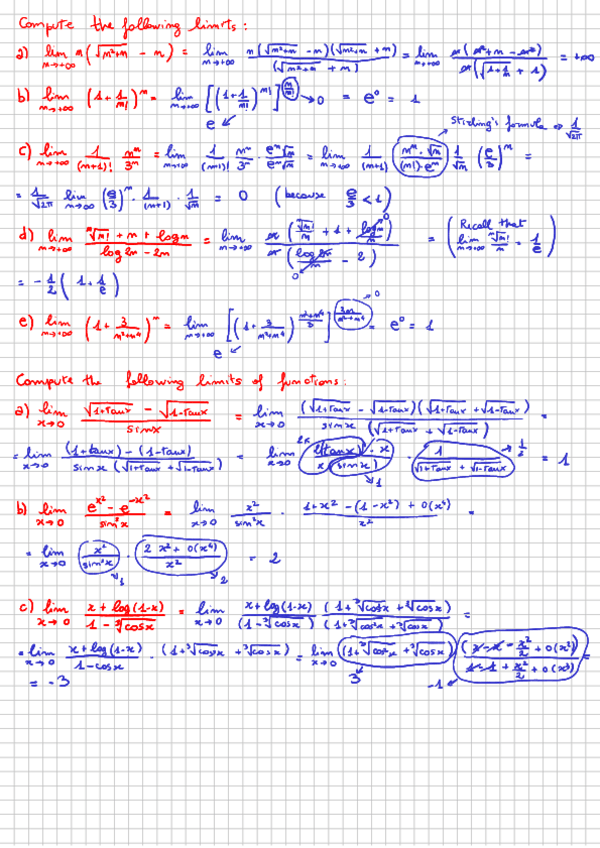 Compute the following limits:
a) lim_{n→+∞} n(√(n²+n) - n) = lim_{n→+∞} n(√(n²+n) - n)(√(n²+n) + n) / (√(n²+n) + n) = lim_{n→+∞} n(n²+n-n²) / n(√(1+1/n) + 1) = +∞
b) lim_{n→+∞} (1+1/n!)^n = lim_{n→∞} [(1+1/n!)^{n!}]^{n/n!} → 0 = e⁰ = 1
e
Stirling's formula ⇒ 1/√2π
c) lim_{n→∞} 1/(n+1)! n^n/3^n = lim_{n→∞} 1/(n+1)! n^n/3^n · e^n√n/e^n√n = lim_{n→∞} 1/(n+1) (n^n·√n/(n!)·e^n) 1/√n (e/3)^n =
= 1/√2π lim_{n→∞} (e/3)^n · 1/(n+1) · 1/√n = 0 (because e/3 < 1)
d) lim_{n→∞} (ⁿ√n! + n + log n)/(log 2n - 2n) = lim_{n→∞} n(ⁿ√n!/n + 1 + log n/n) / n(log 2n/n - 2) = (Recall that lim_{n→∞} ⁿ√n!/n = 1/e)
0
0
= -1/2 (1+1/e)
e) lim_{n→∞} (1+3/(n²+n⁴))^n = lim_{n→∞} [(1+3/(n²+n⁴))^{(n²+n⁴)/3}]^{3n/(n²+n⁴)} → 0 = e⁰ = 1
e
Compute the following limits of functions:
a) lim_{x→0} (√(1+tanx) - √(1-tanx))/sinx = lim_{x→0} (√(1+tanx) - √(1-tanx))(√(1+tanx) + √(1-tanx)) / sinx (√(1+tanx) + √(1-tanx)) =
= lim_{x→0} ((1+tanx) - (1-tanx)) / sinx(√(1+tanx) + √(1-tanx)) = lim_{x→0} 2(tanx)·x / x(sinx) · 1/(√(1+tanx) + √(1-tanx)) → 1/2 = 1
1
b) lim_{x→0} (e^{x²} - e^{-x²})/sin²x = lim_{x→0} x²/sin²x · (1+x² - (1-x²) + o(x⁴))/x² =
= lim_{x→0} x²/sin²x · (2x² + o(x⁴))/x² = 2
1 2
c) lim_{x→0} (x+log(1-x))/(1-³√cosx) = lim_{x→0} (x+log(1-x))/(1-³√cosx) (1+³√cos²x+³√cosx)/(1+³√cos²x+³√cosx) =
= lim_{x→0} (x+log(1-x))/(1-cosx) · (1+³√cos²x+³√cosx) = lim_{x→0} (1+³√cos²x+³√cosx) (x-x-x²/2+o(x²))/(1-1+x²/2+o(x³)) =
3 -1
= -3